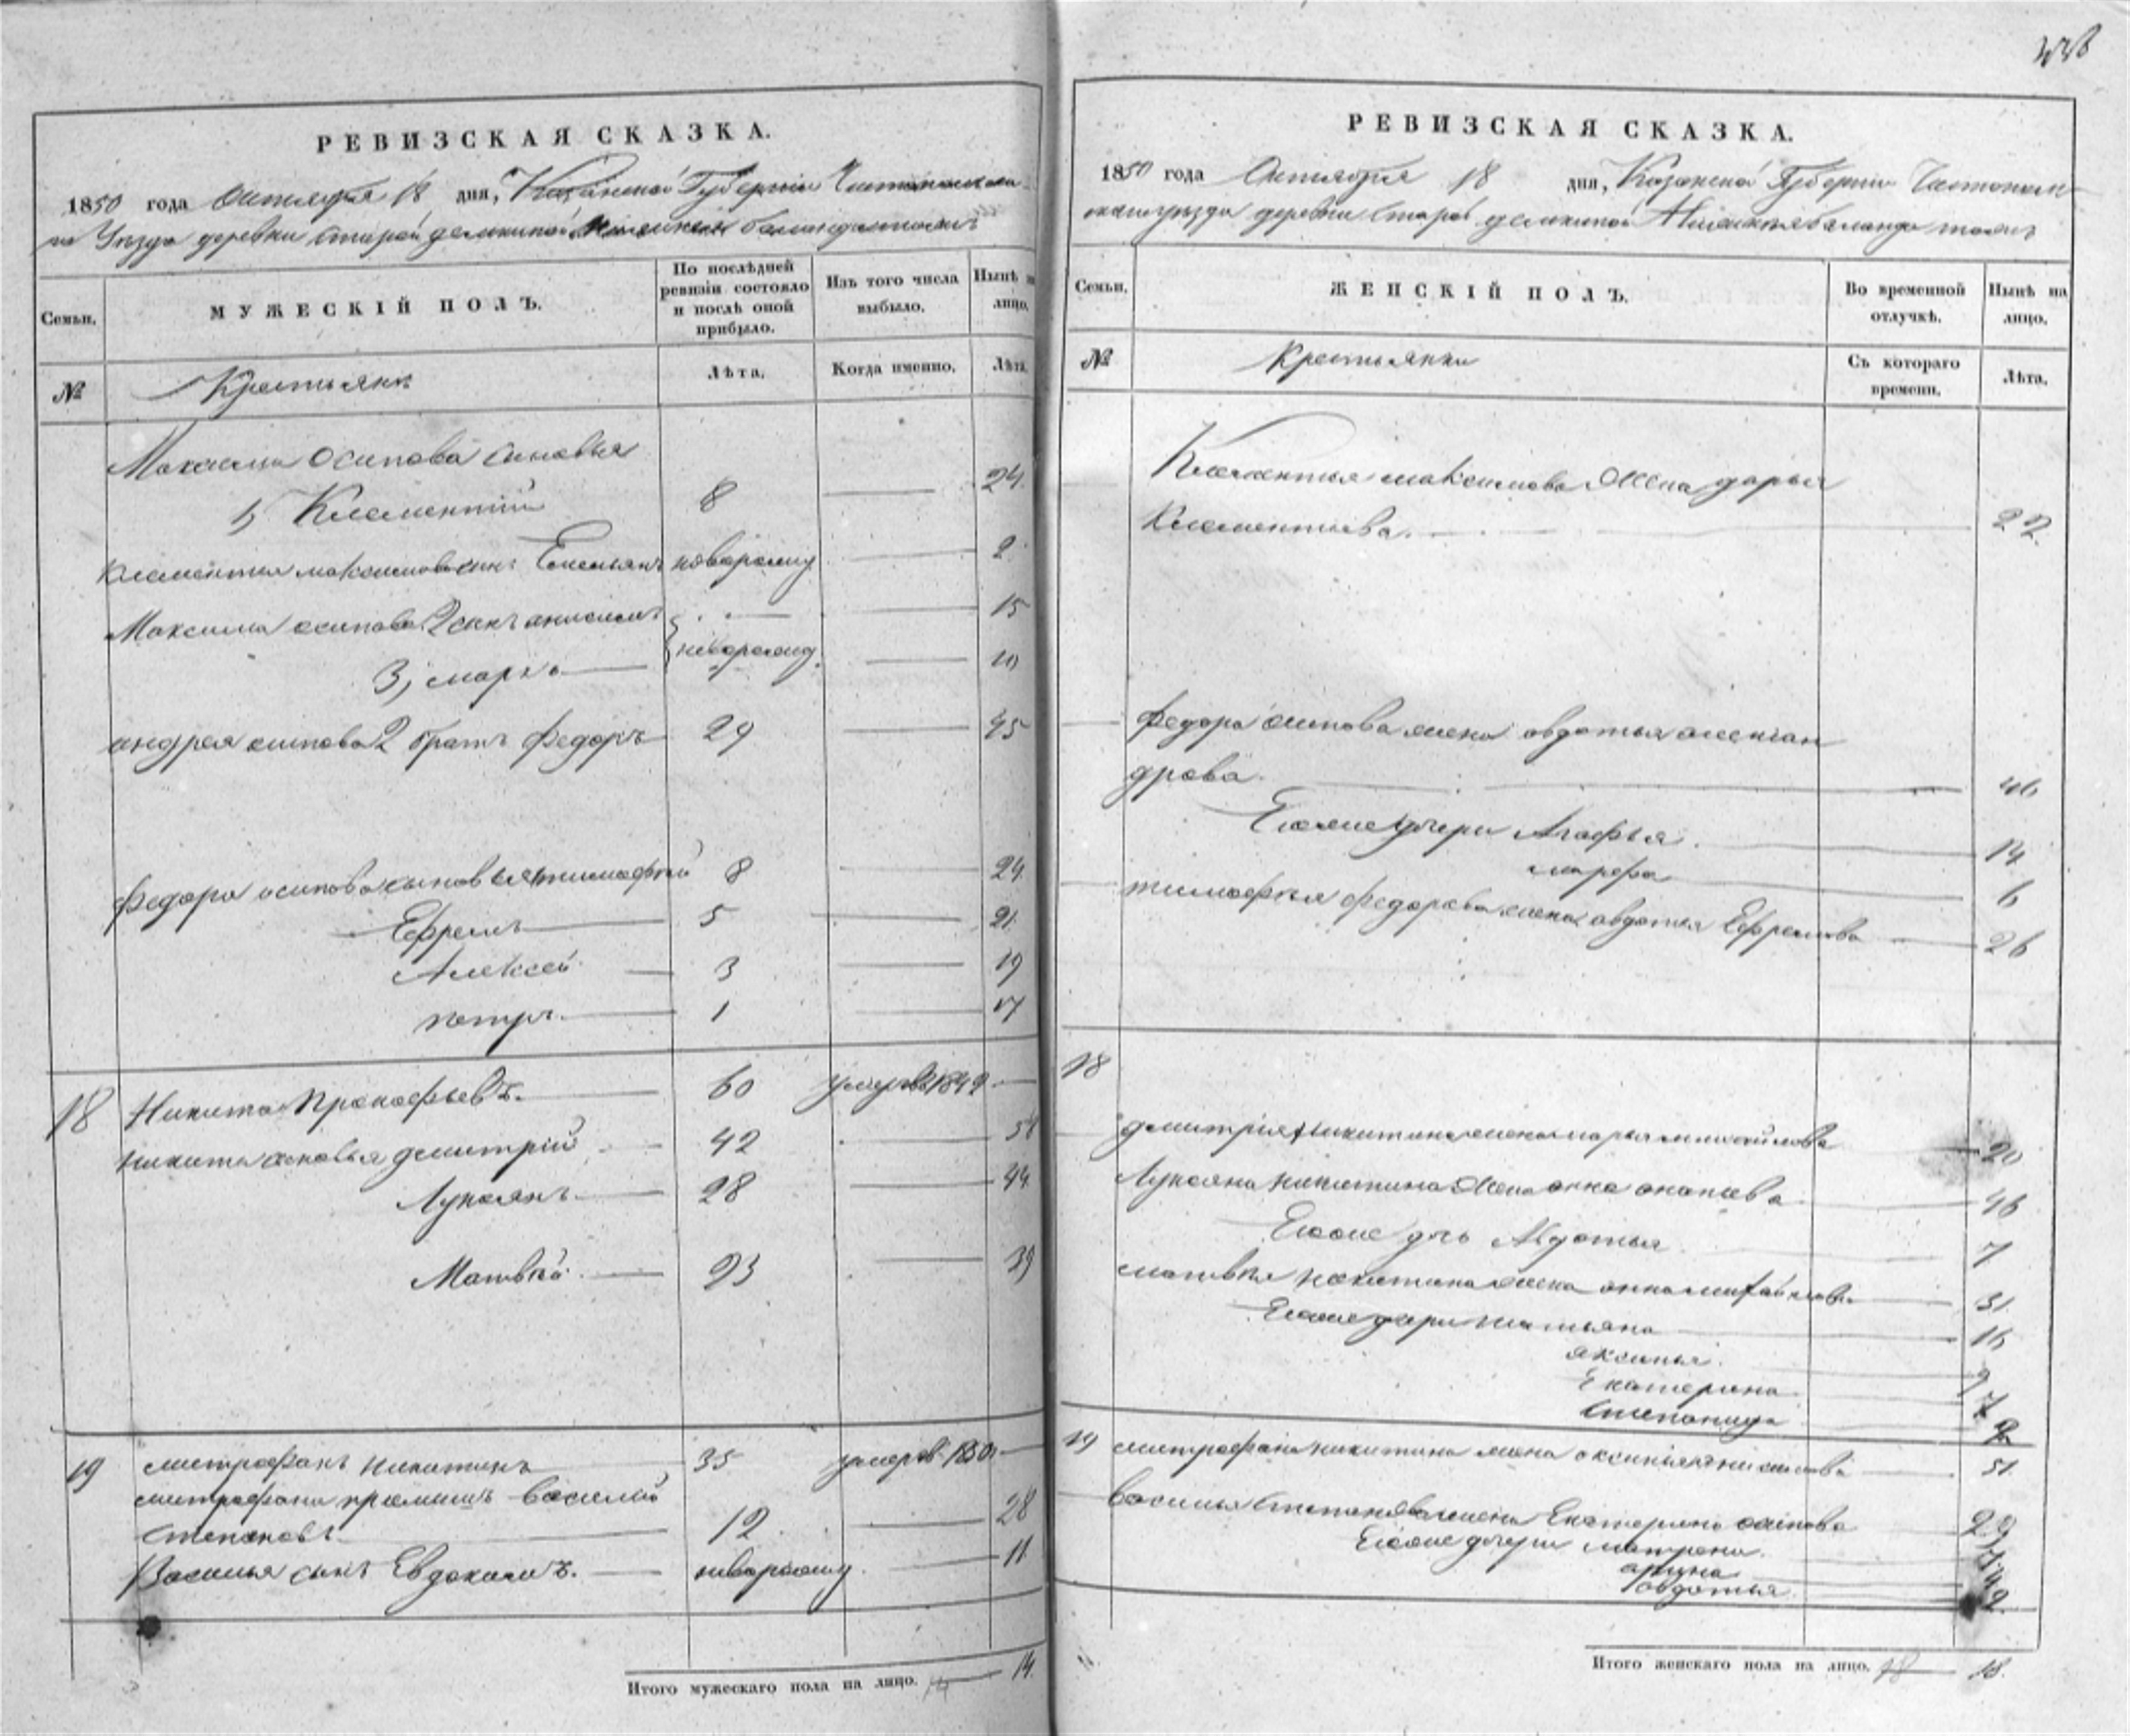 РЕВИЗСКАЯ СКАЗКА.
1850 года Октября 18 дня, Казанской Губернии
Уезда деревни Старой
Семьи.
МУЖЕСКІЙ ПОЛЪ.
По послѣдней ревизіи состояло и послѣ оной прибыло.
Изъ того числа выбыло.
Нынѣ на лицо.
№
Крестьяне
Лѣта.
Когда именно.
Лѣта.
Максима Осипова сыновья
1, Клементий 8 24.
Клементья максимова сынъ Емельянъ новорожд. 2
Максима осипова 2 сынъ анисимъ 15
3, марко новорожд. 10
андрея осипова 2 братъ Федоръ 29 45
Федора осипова сыновья тимофей 8 24.
Ефремъ 5 21.
Алексей 3 19
петръ 1 17
18 Никита Прокофьевъ. 60 умеръ 1849
никиты сыновья дмитрий 42 58
Лукоянъ 28 44
Матвей 23 39
19 митрофанъ никитинъ 35 умеръ 1850
митрофана приемышъ василий
Степановъ 12 28
Василья сынъ Евдокимъ. новорожд. 11
Итого мужескаго пола на лицо. 14.
РЕВИЗСКАЯ СКАЗКА.
1850 года Октября 18 дня, Казанской Губернии
деревни Старой
Семьи.
ЖЕНСКІЙ ПОЛЪ.
Во временной отлучкѣ.
Нынѣ на лицо.
№
Крестьянки
Съ котораго времени.
Лѣта.
Клементья максимова жена дарья
Клементьева. 22.
Федора осипова жена авдотья алексан
дрова. 46
Егоже дчери Агафья 14
марфа 6
тимофея федорова жена авдотья Ефремова 26
18
дмитрия никитина жена марья михайлова 20
Лукояна никитина жена анна 46
Егоже дчь Авдотья 7
матвея никитина жена анна михайлова 31
Егоже дчери татьяна 16
аксинья 9
Екатерина 7
Степанида 2
19 митрофана никитина жена аксинья 51
василья Степанова жена Екатерина осипова 29
Егоже дчери матрена 7
арина 4
авдотья 2.
Итого женскаго пола на лицо. 18 18.